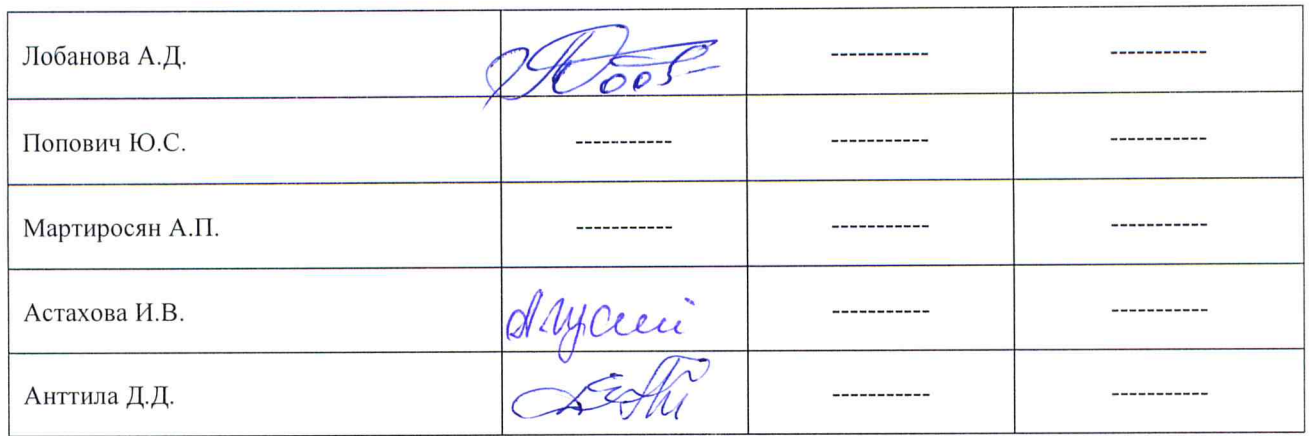 Лобанова А.Д. ----------- -----------
Попович Ю.С. ----------- ----------- -----------
Мартиросян А.П. ----------- ----------- -----------
Астахова И.В. ----------- -----------
Анттила Д.Д. ----------- -----------